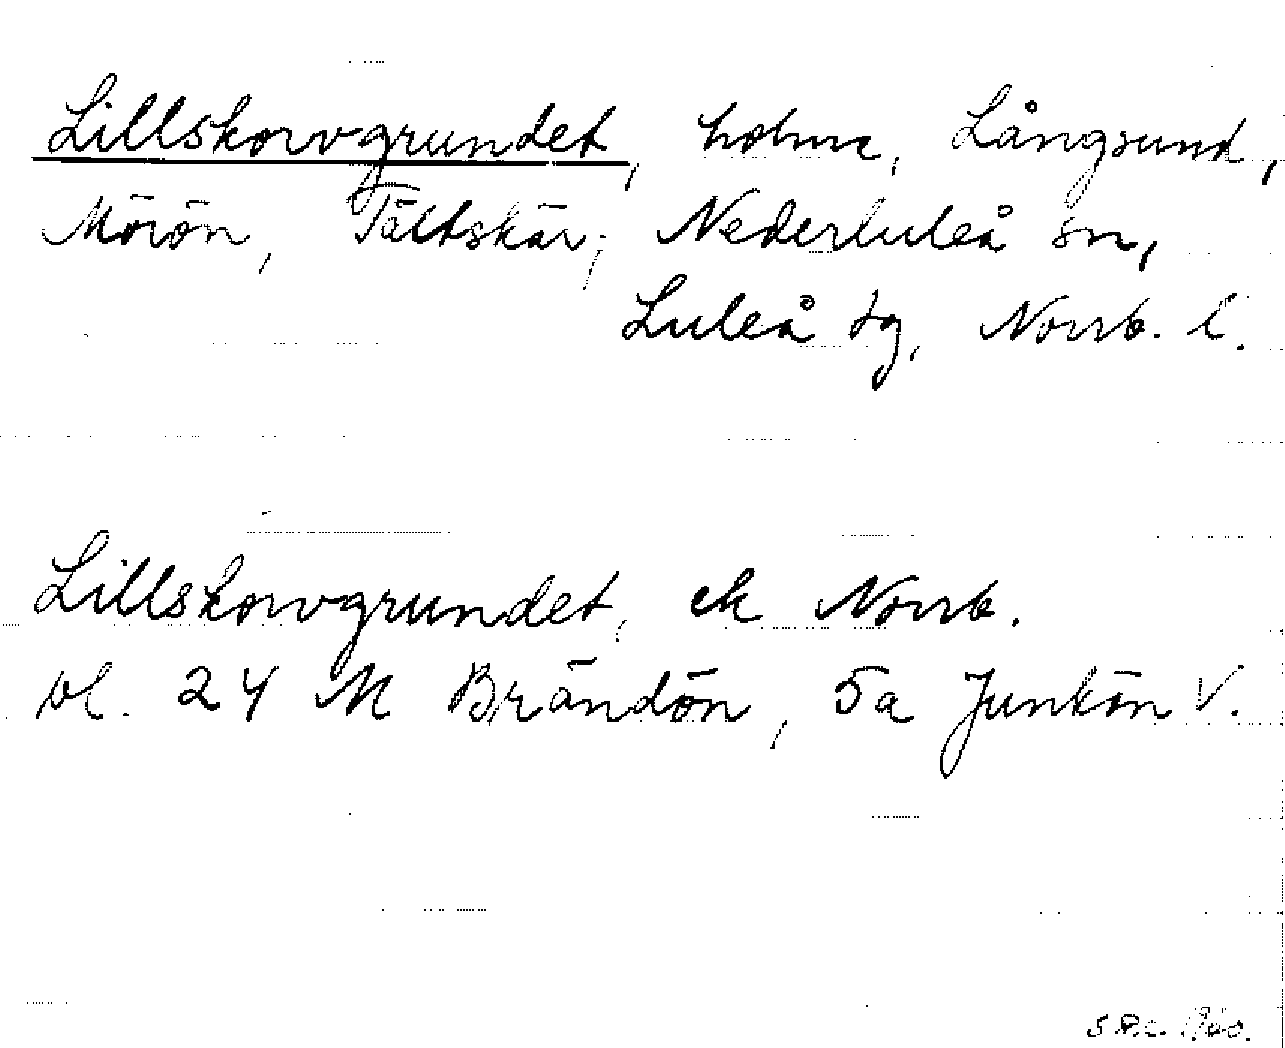 Lillskorvgrundet, holme, Långsund,
Mörön, Tältskär; Nederluleå sn,
Luleå tg, Norrb. l.
Lillskorvgrundet, ek Norrb.
bl. 24 M Brändön, 5a Junkön V.